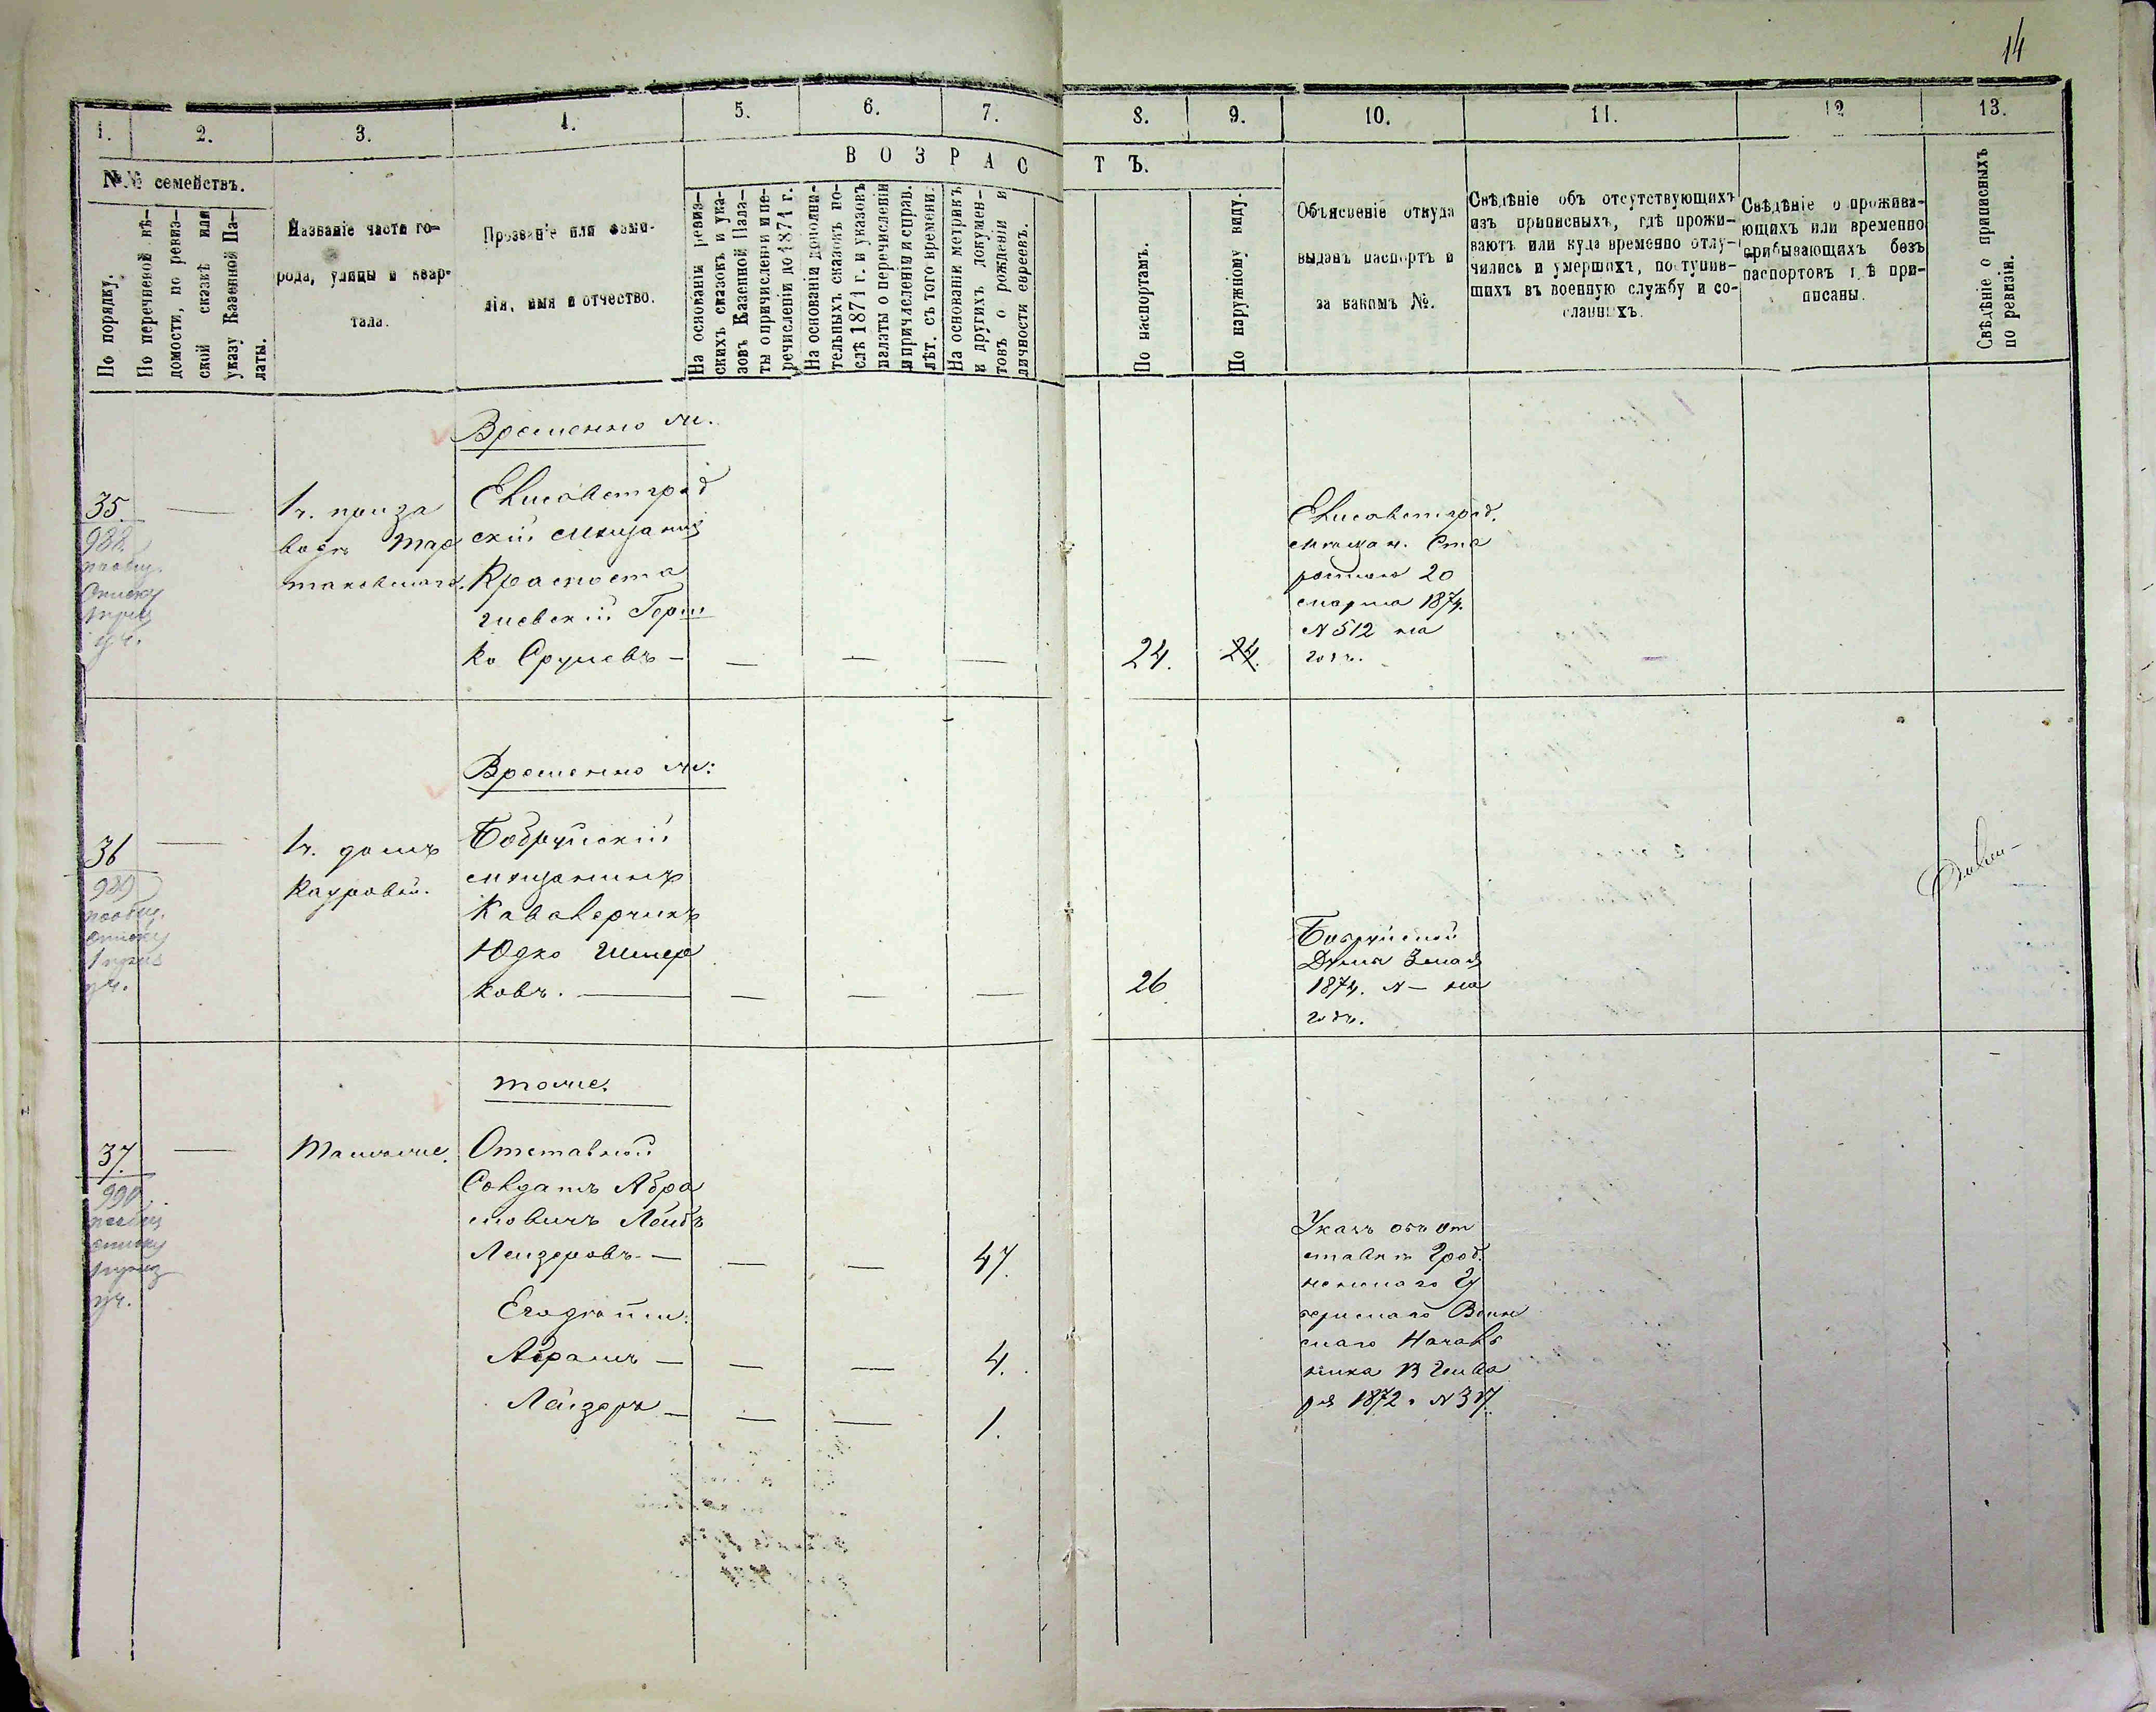 14
1. 2. 3. 4. 5. 6. 7. 8. 9. 10. 11. 12 13.
В О З Р А С Т Ъ.
№№ семействъ.
По порядку.
По перечневой вѣ-
домости, по ревиз-
ской сказкѣ или
указу Казенной Па-
латы.
Названіе части го-
рода, улицы и квар-
тала.
Прозваніе или фами-
лія, имя и отчество.
На основаніи ревиз-
скихъ сказокъ и ука-
зовъ Казенной Пала-
ты о причисленіи и пе-
речисленіи до 1871 г.
На основаніи дополни-
тельныхъ сказокъ по-
слѣ 1871 г. и указовъ
палаты о перечисленіи
и причисленіи и справ.
лѣт. съ того времени.
На основаніи метрикъ
и другихъ докумен-
товъ о рожденіи и
личности евреевъ.
По паспортамъ.
По наружному виду.
Объясненіе откуда
выданъ паспортъ и
за какимъ №.
Свѣдѣніе объ отсутствующихъ
изъ приписныхъ, гдѣ прожи-
ваютъ или куда временно отлу-
чились и умершихъ, поступив-
шихъ въ военную службу и со-
сланныхъ.
Свѣдѣніе о прожива-
ющихъ или временно
прибывающихъ безъ
паспортовъ гдѣ при-
писаны.
Свѣдѣніе о приписныхъ
по ревизіи.
Временно ж.
35.
988.
1 ч. при за
водѣ
Елисаветград
скій мѣщанин
Герш
ко Срулевъ —
— — —
24. 24.
Елисаветград.
мѣщан. Ста
ростою 20
марта 1874.
№ 512 на
годъ.
Временно ж:
36
989
1 ч. домъ
Бобруйскій
мѣщанинъ
Юдко Шмер
ковъ. —
— — —
26
Бобруйской
Думы
1874. № — на
годъ.
тоже.
37.
990
Тамже.
Отставной
Солдатъ Абра
мовичъ Лейбъ
Лейзеровъ —
— — 47.
Его дѣти:
Абрамъ — — — 4.
Лейзеръ — — — 1.
Указъ объ от
ставкѣ Грод
ненскаго Гу
бернскаго Воин
скаго Началь
ника 13 Янва
ря 1872.